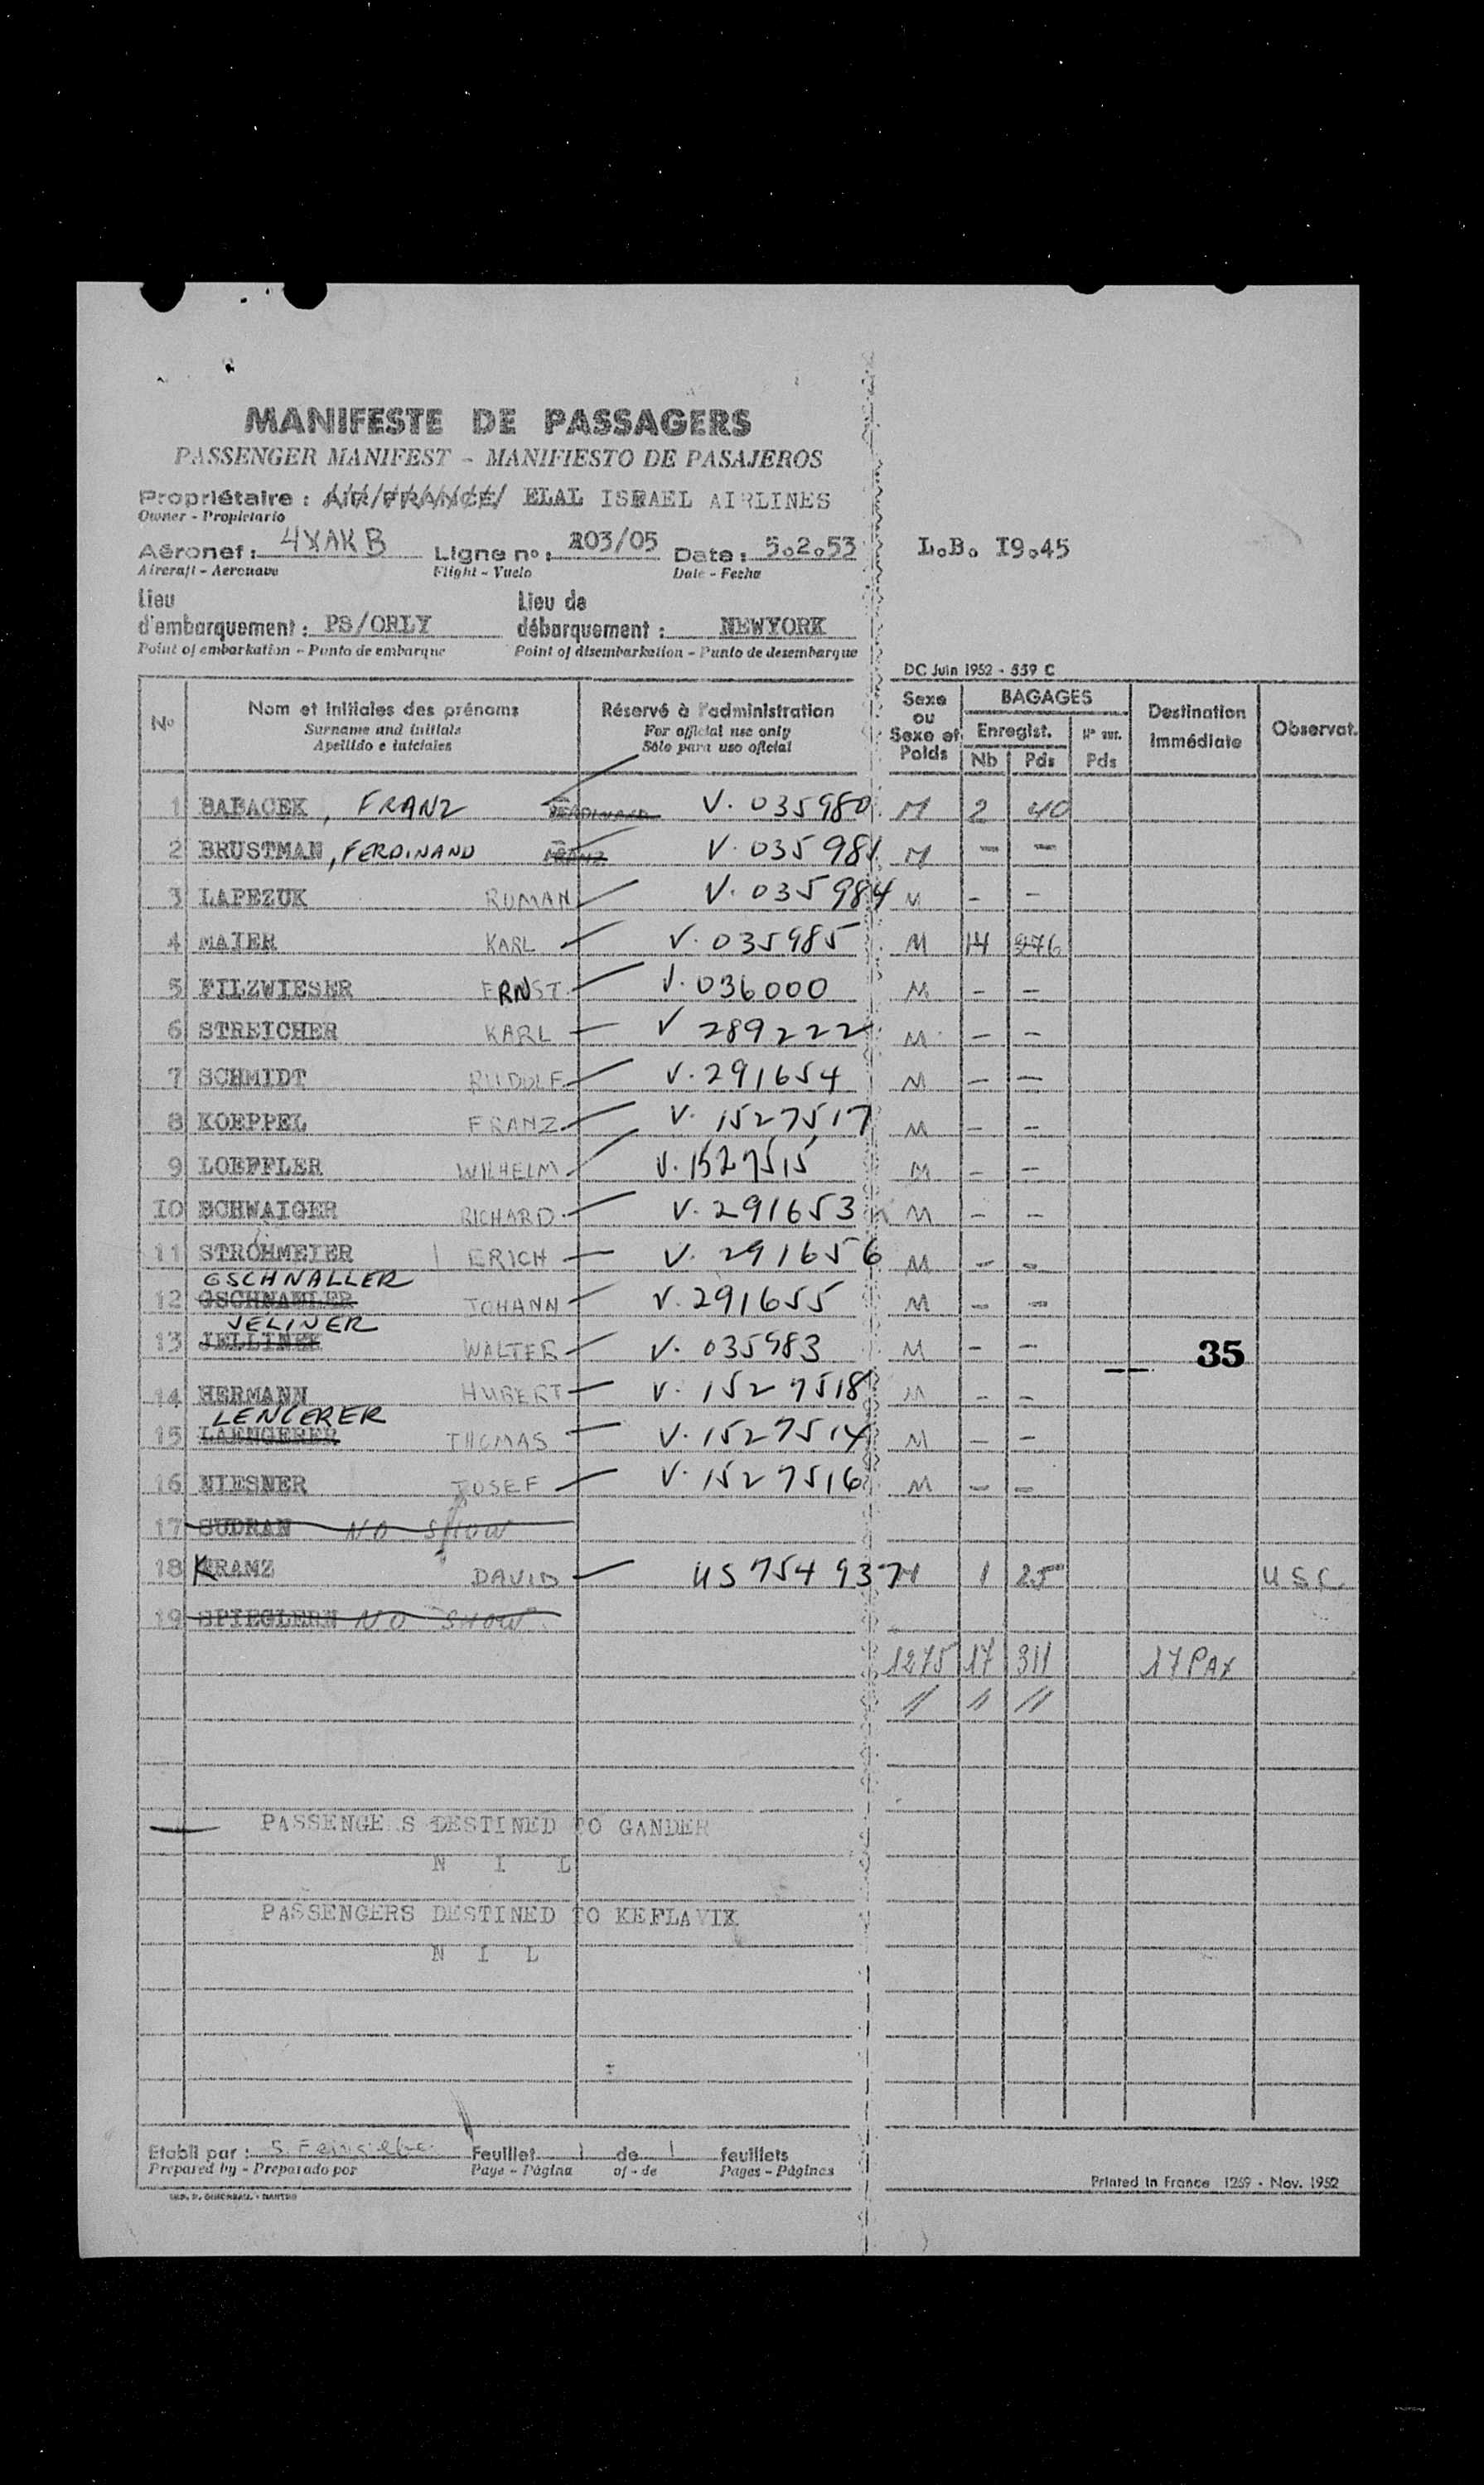 MANIFESTE DE PASSAGERS
PASSENGER MANIFEST - MANIFIESTO DE PASAJEROS
Propriétaire : AIR/FRANCE/ ELAL ISRAEL AIRLINES
Owner - Propietario
Aéronef : 4XAKB Ligne no : 203/05 Date : 5.2.53 L.B. I9.45
Aircraft - Aeronave Flight - Vuelo Date - Fecha
Lieu d'embarquement : PS/ORLY Lieu de débarquement : NEWYORK
Point of embarkation - Punto de embarque Point of disembarkation - Punto de desembarque
DC Juin 1952 - 559 C
No Nom et initiales des prénoms Réservé à l'administration Sexe ou Sexe et Poids BAGAGES Destination immédiate Observat.
Surname and initials For official use only Enregist. No sur.
Apellido e iniciales Sólo para uso oficial Nb Pds Pds
1 BABACEK, FRANZ FERDINAND V. 035980 M 2 40
2 BRUSTMAN, FERDINAND FRANZ V. 035981 M - -
3 LAPEZUK ROMAN V. 035984 M - -
4 MAIER KARL V. 035985 M 14 246
5 FILZWIESER ERNST V. 036000 M - -
6 STREICHER KARL V 289222 M - -
7 SCHMIDT RUDOLF V. 291654 M - -
8 KOEPPEL FRANZ V. 1527517 M - -
9 LOEFFLER WILHELM V. 1527515 M - -
I0 SCHWAIGER RICHARD V. 291653 M - -
11 STROHMEIER ERICH V. 291656 M - -
GSCHNALLER
12 GSCHNAMLER JOHANN V. 291655 M - -
JELINEK
13 JELLINEK WALTER V. 035983 M - -
35
14 HERMANN HUBERT V. 1527518 M - -
LENGERER
15 LAENGERER THOMAS V. 1527514 M - -
16 NIESNER JOSEF V. 1527516 M - -
17 SUDRAN NO SHOW
18 KRANZ DAVID US 754 937 M 1 25 U S C.
19 SPIEGLERN NO SHOW
1275 17 311 17 PAX
PASSENGE S DESTINED TO GANDER
N I L
PASSENGERS DESTINED TO KEFLAVIK
N I L
Etabli par : Feuillet 1 de 1 feuillets
Prepared by - Preparado por Page - Página of - de Pages - Páginas
Printed in France 1259 - Nov. 1952